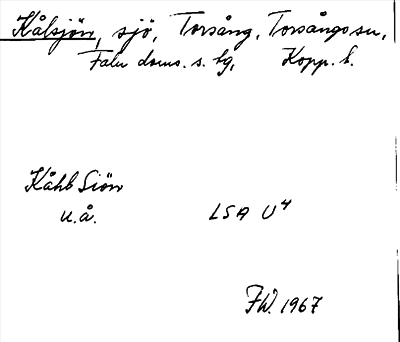 Kålsjön, sjö, Torsång, Torsångs sn,
Falu doms. s. tg, Kopp. l.
Kåhls Siön
u.å. LSA U4
F.W. 1967